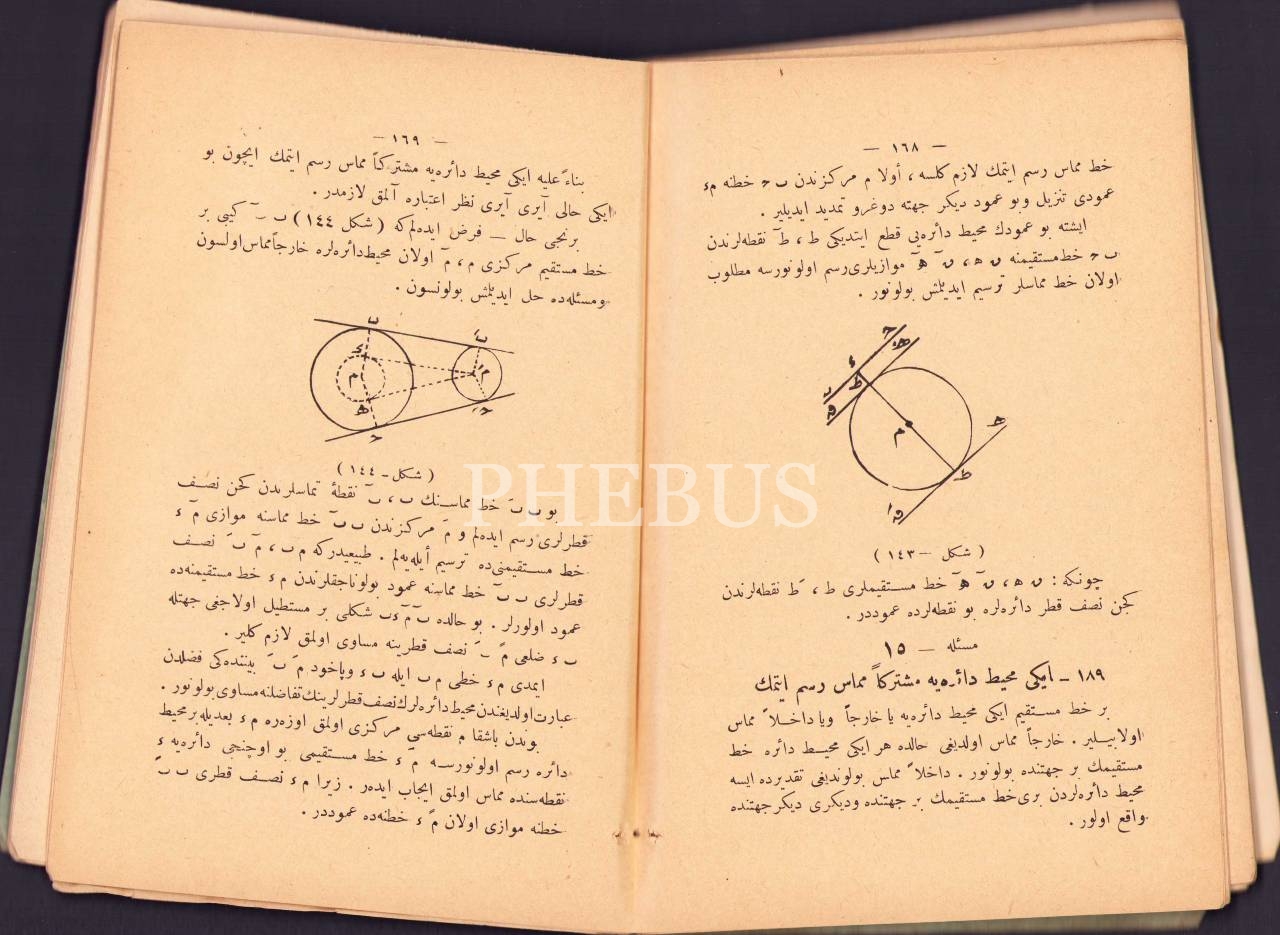 — ١٦٨ —
خط مماس رسم ايتمك لازم كلسه ، أولا م مركزندن ب ح خطنه م ء
عمودى تنزيل وبو عمود ديكر جهته دوغرو تمديد ايديلير .
ايشته بو عمودك محيط دائره‌يى قطع ايتديكى ط ، طَ نقطه‌لرندن
ب ح خط مستقيمنه ں ه ، ںَ هَ موازيلرى رسم اولونورسه مطلوب
اولان خط مماسلر ترسيم ايديلمش بولونور .
ح
ه
ء
ط
ب
ں
م
ه
ط
ں
( شكل — ١٤٣ )
چونكه : ں ه ، ںَ هَ خط مستقيملرى ط ، طَ نقطه‌لرندن
كچن نصف قطر دائره‌لره بو نقطه‌لرده عموددر .
مسئله — ١٥
١٨٩ — ايكى محيط دائره‌يه مشتركاً مماس رسم ايتمك
بر خط مستقيم ايكى محيط دائره‌يه يا خارجاً ويا داخلاً مماس
اولابيلير . خارجاً مماس اولديغى حالده هر ايكى محيط دائره خط
مستقيمك بر جهتنده بولونور . داخلاً مماس بولونديغى تقديرده ايسه
محيط دائره‌لردن برى خط مستقيمك بر جهتنده وديكرى ديكر جهتنده
واقع اولور .
— ١٦٩ —
بناءً عليه ايكى محيط دائره‌يه مشتركاً مماس رسم ايتمك ايچون بو
ايكى حالى آيرى آيرى نظر اعتباره آلمق لازمدر .
برنجى حال — فرض ايده‌لم كه ( شكل ١٤٤ ) ب بَ كيبى بر
خط مستقيم مركزى م ، مَ اولان محيط دائره‌لره خارجاً مماس اولسون
ومسئله‌ده حل ايديلمش بولونسون .
ب
بَ
ء
م
مَ
ه
ح
حَ
( شكل — ١٤٤ )
بو ب بَ خط مماسنك ب ، بَ نقطۀ تماسلرندن كچن نصف
قطرلرى رسم ايده‌لم و مَ مركزندن ب بَ خط مماسنه موازى مَ ء
خط مستقيمنى‌ده ترسيم أيله‌يه‌لم . طبيعيدركه م ب ، مَ بَ نصف
قطرلرى ب بَ خط مماسنه عمود بولوناجقلرندن م ء خط مستقيمنه‌ده
عمود اولورلر . بو حالده بَ مَ ء ب شكلى بر مستطيل اولاجغى جهتله
ب ء ضلعى مَ بَ نصف قطرينه مساوى اولمق لازم كلير .
ايمدى م ء خطى م ب ايله ب ء وياخود مَ بَ بيننده‌كى فضلدن
عبارت اولديغندن محيط دائره‌لرك نصف قطرلرينك تفاضلنه مساوى بولونور .
بوندن باشقا م نقطه‌سى مركزى اولمق اوزه‌ره م ء بعديله بر محيط
دائره رسم اولونورسه مَ ء خط مستقيمى بو اوچنجى دائره‌يه ء
نقطه‌سنده مماس اولمق ايجاب ايدەر . زيرا م ء نصف قطرى ب بَ
خطنه موازى اولان مَ ء خطنه‌ده عموددر .
PHEBUS